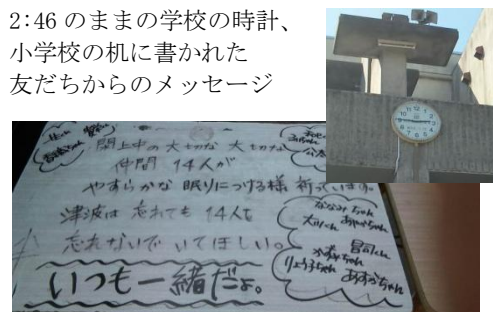 2:46 のままの学校の時計、
小学校の机に書かれた
友だちからのメッセージ
閖上中の大切な大切な
仲間 14人が
やすらかな眠りにつける様 祈っています。
津波は忘れても 14人を
忘れないで いてほしい。
いつも一緒だよ。
ななみちゃん
あやかちゃん
りょうちゃん あすかちゃん